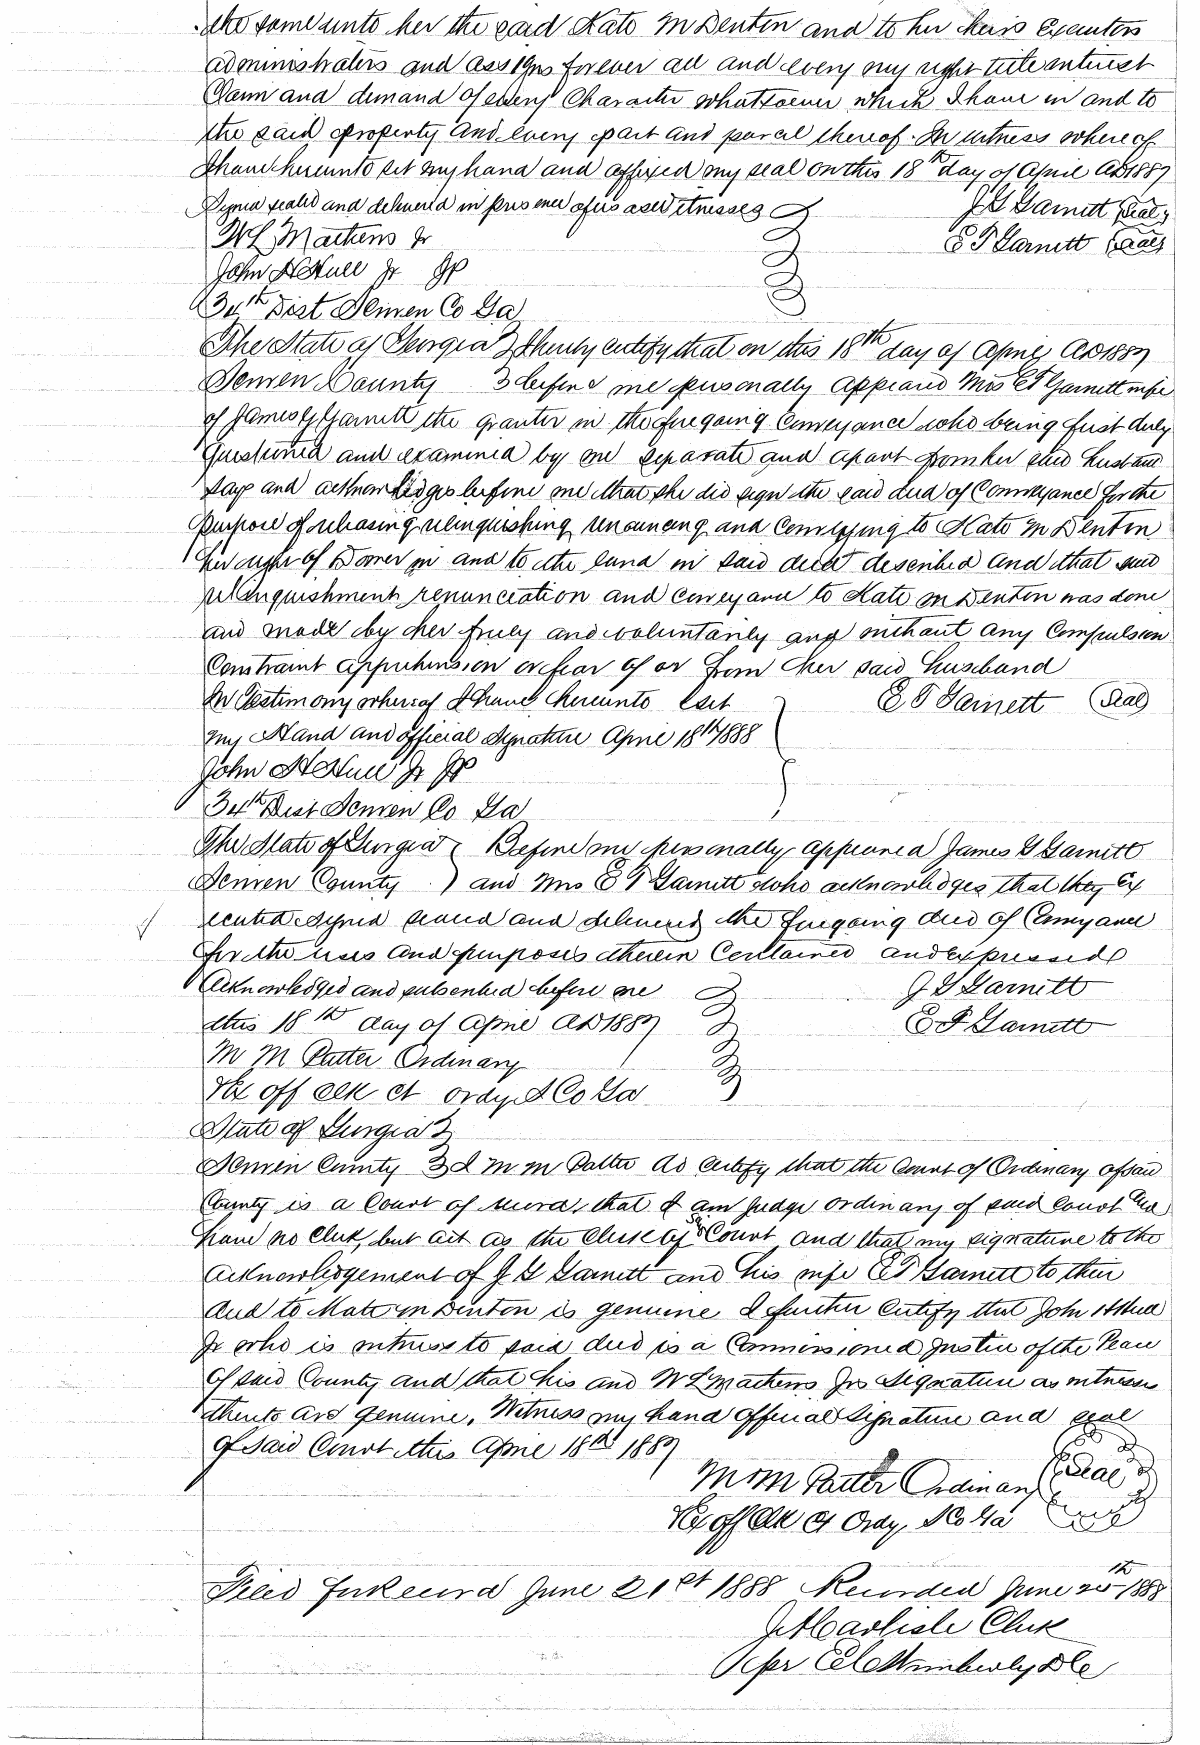 the same unto her the said Kate M Denton and to her heirs Executors
administrators and assigns forever all and every my right title interest
Claim and demand of every Character whatsoever which I have in and to
the said property and every part and parcel thereof. In witness whereof
I have hereunto set my hand and affixed my seal on this 18th day of April AD1887
Signed sealed and delivered in presence of us as Witnesses
J G Garnitt Seal
W L Mathews Jr
E T Garnitt Seal
John H Hull Jr JP
34th Dist Scriven Co Ga
The State of Georgia } I hereby certify that on this 18th day of April AD1887
Scriven County } before me personally appeared Mrs E T Garnitt wife
of James G Garnitt the granter in the foregoing Conveyance who being first duly
questioned and examined by me separate and apart from her said husband
says and acknowledges before me that she did sign the said deed of Conveyance for the
purpose of releasing relinquishing renouncing and Conveying to Kate M Denton
her right of Dower in and to the land in said deed described and that said
relinquishment renunciation and conveyance to Kate M Denton was done
and made by her freely and voluntarily and without any Compulsion
Constraint apprehension or fear of or from her said husband
In Testimony whereof I have hereunto set
E T Garnitt Seal
my Hand and official Signature April 18th 1888
John H Hull Jr JP
34th Dist Scriven Co Ga
The State of Georgia } Before me personally appeared James G Garnitt
Scriven County } and Mrs E T Garnitt who acknowledges that they Ex
ecuted signed sealed and delivered the foregoing deed of Conveyance
for the uses and purposes therein Contained and expressed
Acknowledged and subscribed before me
J G Garnitt
this 18th day of April AD1887
E T Garnitt
M M Potter Ordinary
& Ex off clk ct ordy. S Co Ga
State of Georgia }
Scriven County } I M M Potter do certify that the Court of Ordinary of said
County is a Court of record, that I am Judge ordinary of said Court and
have no Clerk, but act as the Clerk of sd Court and that my signature to the
acknowledgement of J G Garnitt and his wife E T Garnitt to their
deed to Kate M Denton is genuine I further Certify that John H Hull
Jr who is witness to said deed is a Commissioned Justice of the Peace
of said County and that his and W L Mathews Jrs Signature as witnesses
thereto are genuine. Witness my hand official Signature and seal
of said Court this April 18th 1887
M M Potter Ordinary Seal
& Ex off Clk Ct Ordy, S Co Ga
Filed for Record June 21st 1888 Recorded June 25th 1888
J M Carlisle Clerk
per E C Wimberly D C